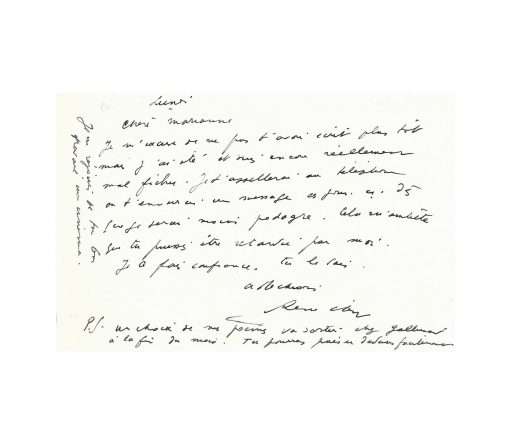 Lundi
Chère Marianne
Je m'excuse de ne pas t'avoir écrit plus tôt
mais j'ai été et suis encore réellement
mal fichu. Je t'appellerai au téléphone
ou t'enverrai un message un jour
que je serai moins podagre. Cela m'embête
que tu puisses être retardée par moi.
Je te fais confiance. Tu le sais.
Affections
René Char
P.S. un choix de mes poèmes va sortir chez Gallimard
à la fin du mois. Tu pourras puiser dedans
Je me réjouis de ton bon
travail